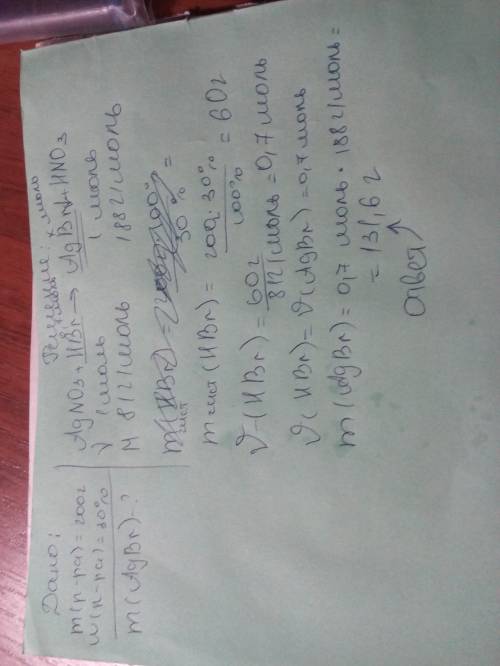 Дано:
m(р-ра) = 200г
w(р-ра) = 30%
m(AgBr) - ?
Решение:
x моль x моль
AgNO3 + HBr → AgBr↓ + HNO3
ν 1 моль 1 моль
M 81 г/моль 188 г/моль
m чист (HBr) = 200г · 30% / 100% = 60г
ν(HBr) = 60г / 81г/моль = 0,7 моль
ν(HBr) = ν(AgBr) = 0,7 моль
m(AgBr) = 0,7 моль · 188г/моль =
= 131,6 г
Ответ